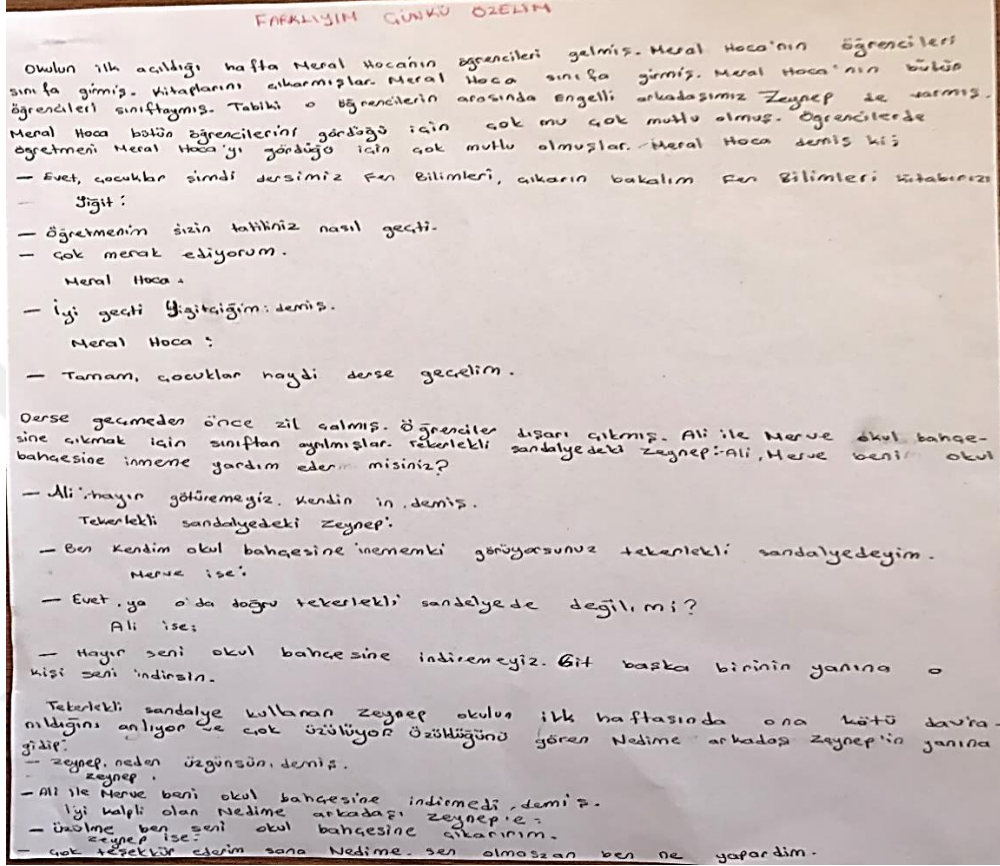 FARKLIYIM ÇÜNKÜ ÖZELİM
Okulun ilk açıldığı hafta Meral Hocanın öğrencileri gelmiş. Meral Hoca'nın öğrencileri
sınıfa girmiş. Kitaplarını çıkarmışlar. Meral Hoca sınıfa girmiş. Meral Hoca'nın bütün
öğrencileri sınıftaymış. Tabiki o öğrencilerin arasında Engelli arkadaşımız Zeynep de varmış.
Meral Hoca bütün öğrencilerini gördüğü için çok mu çok mutlu olmuş. Öğrencilerde
öğretmeni Meral Hoca'yı gördüğü için çok mutlu olmuşlar. Meral Hoca demiş ki;
— Evet, çocuklar şimdi dersimiz Fen Bilimleri, çıkarın bakalım Fen Bilimleri kitabınızı
Yiğit:
— Öğretmenim sizin tatiliniz nasıl geçti.
— Çok merak ediyorum.
Meral Hoca.
— İyi geçti Yiğitçiğim: demiş.
Meral Hoca:
— Tamam, çocuklar haydi derse geçelim.
Derse geçmeden önce zil çalmış. Öğrenciler dışarı çıkmış. Ali ile Merve okul bahçe-
sine çıkmak için sınıftan ayrılmışlar. Tekerlekli sandalyedeki Zeynep:-Ali, Merve beni okul
bahçesine inmeme yardım eder misiniz?
— Ali: hayır götüremeyiz. Kendin in, demiş.
Tekerlekli sandalyedeki Zeynep:
— Ben kendim okul bahçesine inememki görüyorsunuz tekerlekli sandalyedeyim.
Merve ise:
— Evet, ya o'da doğru tekerlekli sandelyede değil, mi?
Ali ise:
— Hayır seni okul bahçesine indiremeyiz. Git başka birinin yanına o
kişi seni indirsin.
Tekerlekli sandalye kullanan Zeynep okulun ilk haftasında ona kötü davra-
nıldığını anlıyor ve çok üzülüyor. Üzüldüğünü gören Nedime arkadaş Zeynep'in yanına
gidip:
— Zeynep, neden üzgünsün, demiş.
Zeynep.
— Ali ile Merve beni okul bahçesine indirmedi, demiş.
İyi kalpli olan Nedime arkadaşı Zeynep'e:
— Üzülme ben seni okul bahçesine çıkarırım.
Zeynep ise:
— Çok teşekkür ederim sana Nedime. sen olmaszan ben ne yapardım.